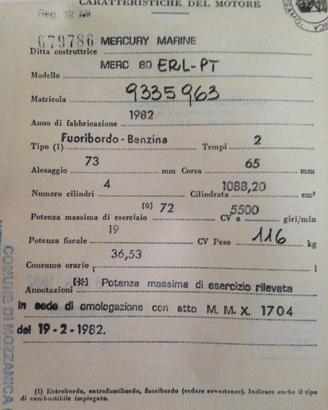 CARATTERISTICHE DEL MOTORE
Reg. 12 Mi
679786 MERCURY MARINE
Ditta costruttrice
MERC 80 ERL-PT
Modello
9335963
Matricola
1982
Anno di fabbricazione
Fuoribordo - Benzina 2
Tipo (1) Tempi
73 65
Alesaggio mm Corsa mm
4 1088,20
Numero cilindri Cilindrata cm³
72 5500
Potenza massima di esercizio CV a giri/min
19 116
Potenza fiscale CV Peso kg
36,53
Consumo orario l
Annotazioni Potenza massima di esercizio rilevata
in sede di omologazione con atto M.M.X. 1704
del 19-2-1982.
(1) Entrobordo, entrofuoribordo, fuoribordo (vedere avvertenze). Indicare anche il tipo
di combustibile impiegato.
COMUNE DI MOZZANICA